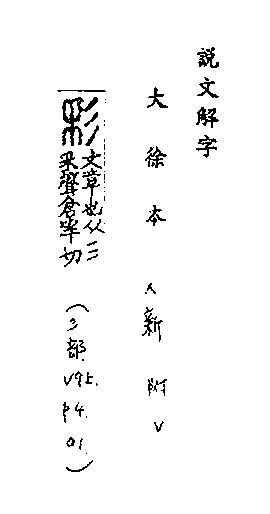 說文解字
大徐本〈新附〉
彩 文章也从彡
采聲倉宰切
(彡部
V9上.
P4.
01.)